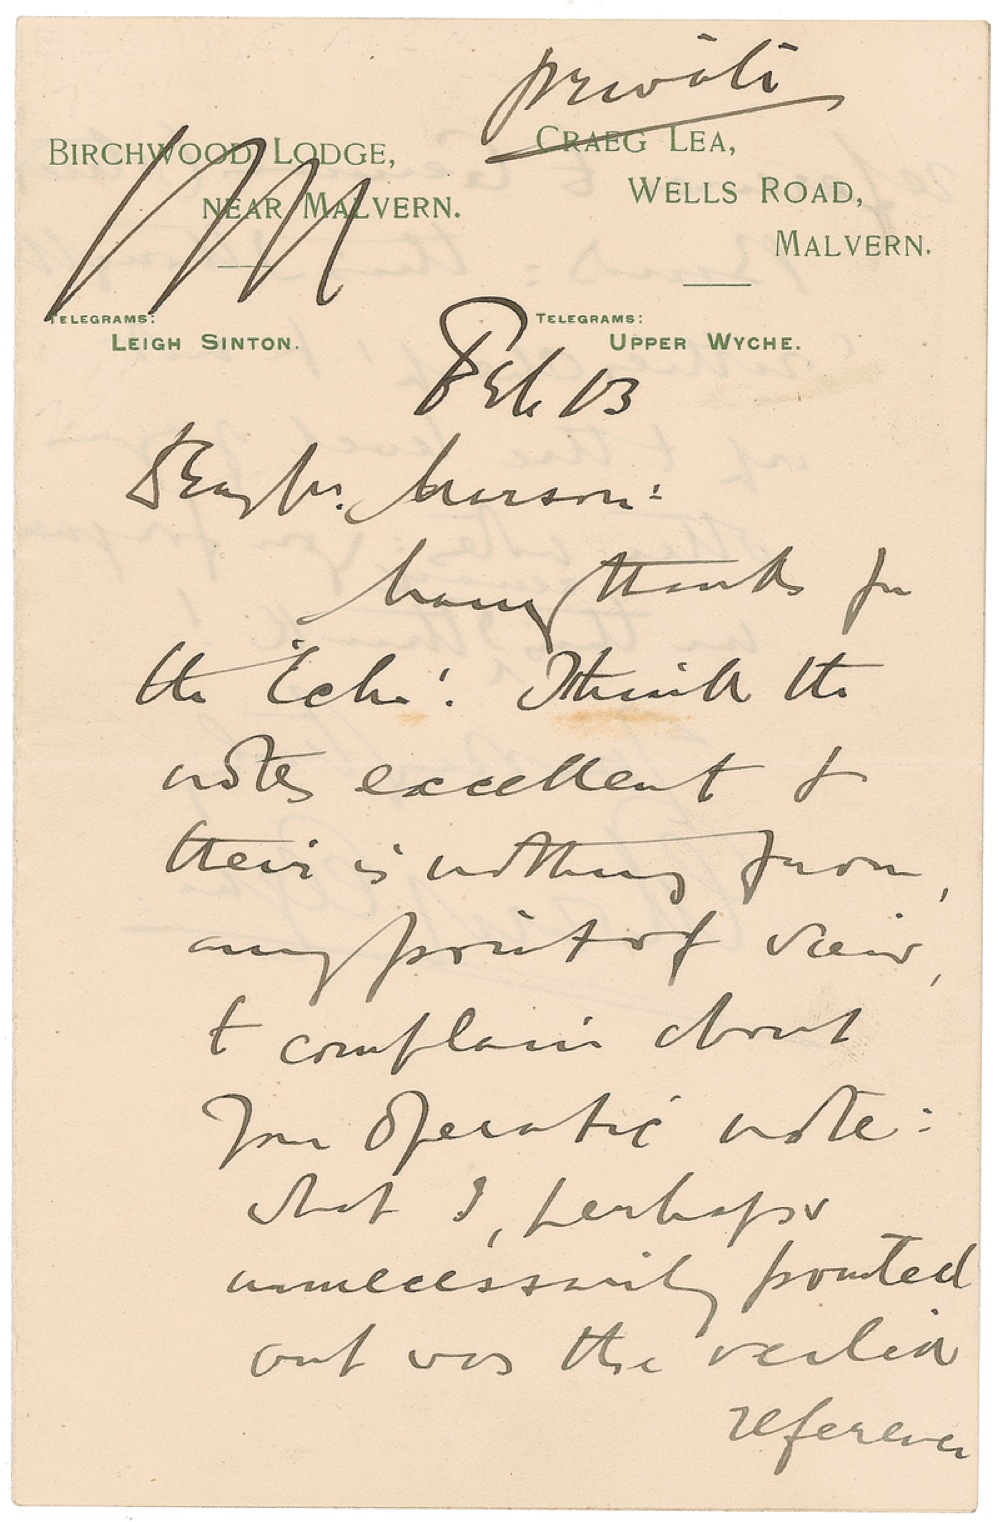 private
BIRCHWOOD LODGE,
NEAR MALVERN.
CRAEG LEA,
WELLS ROAD,
MALVERN.
TELEGRAMS:
LEIGH SINTON.
TELEGRAMS:
UPPER WYCHE.
Feb 13
Dear Mr.
Many thanks for
the 'Echo'. I think the
notes excellent &
their is nothing from,
any point of view,
to complain about
your operatic note:
what I, perhaps
unnecessarily pointed
out was the earlier
reference